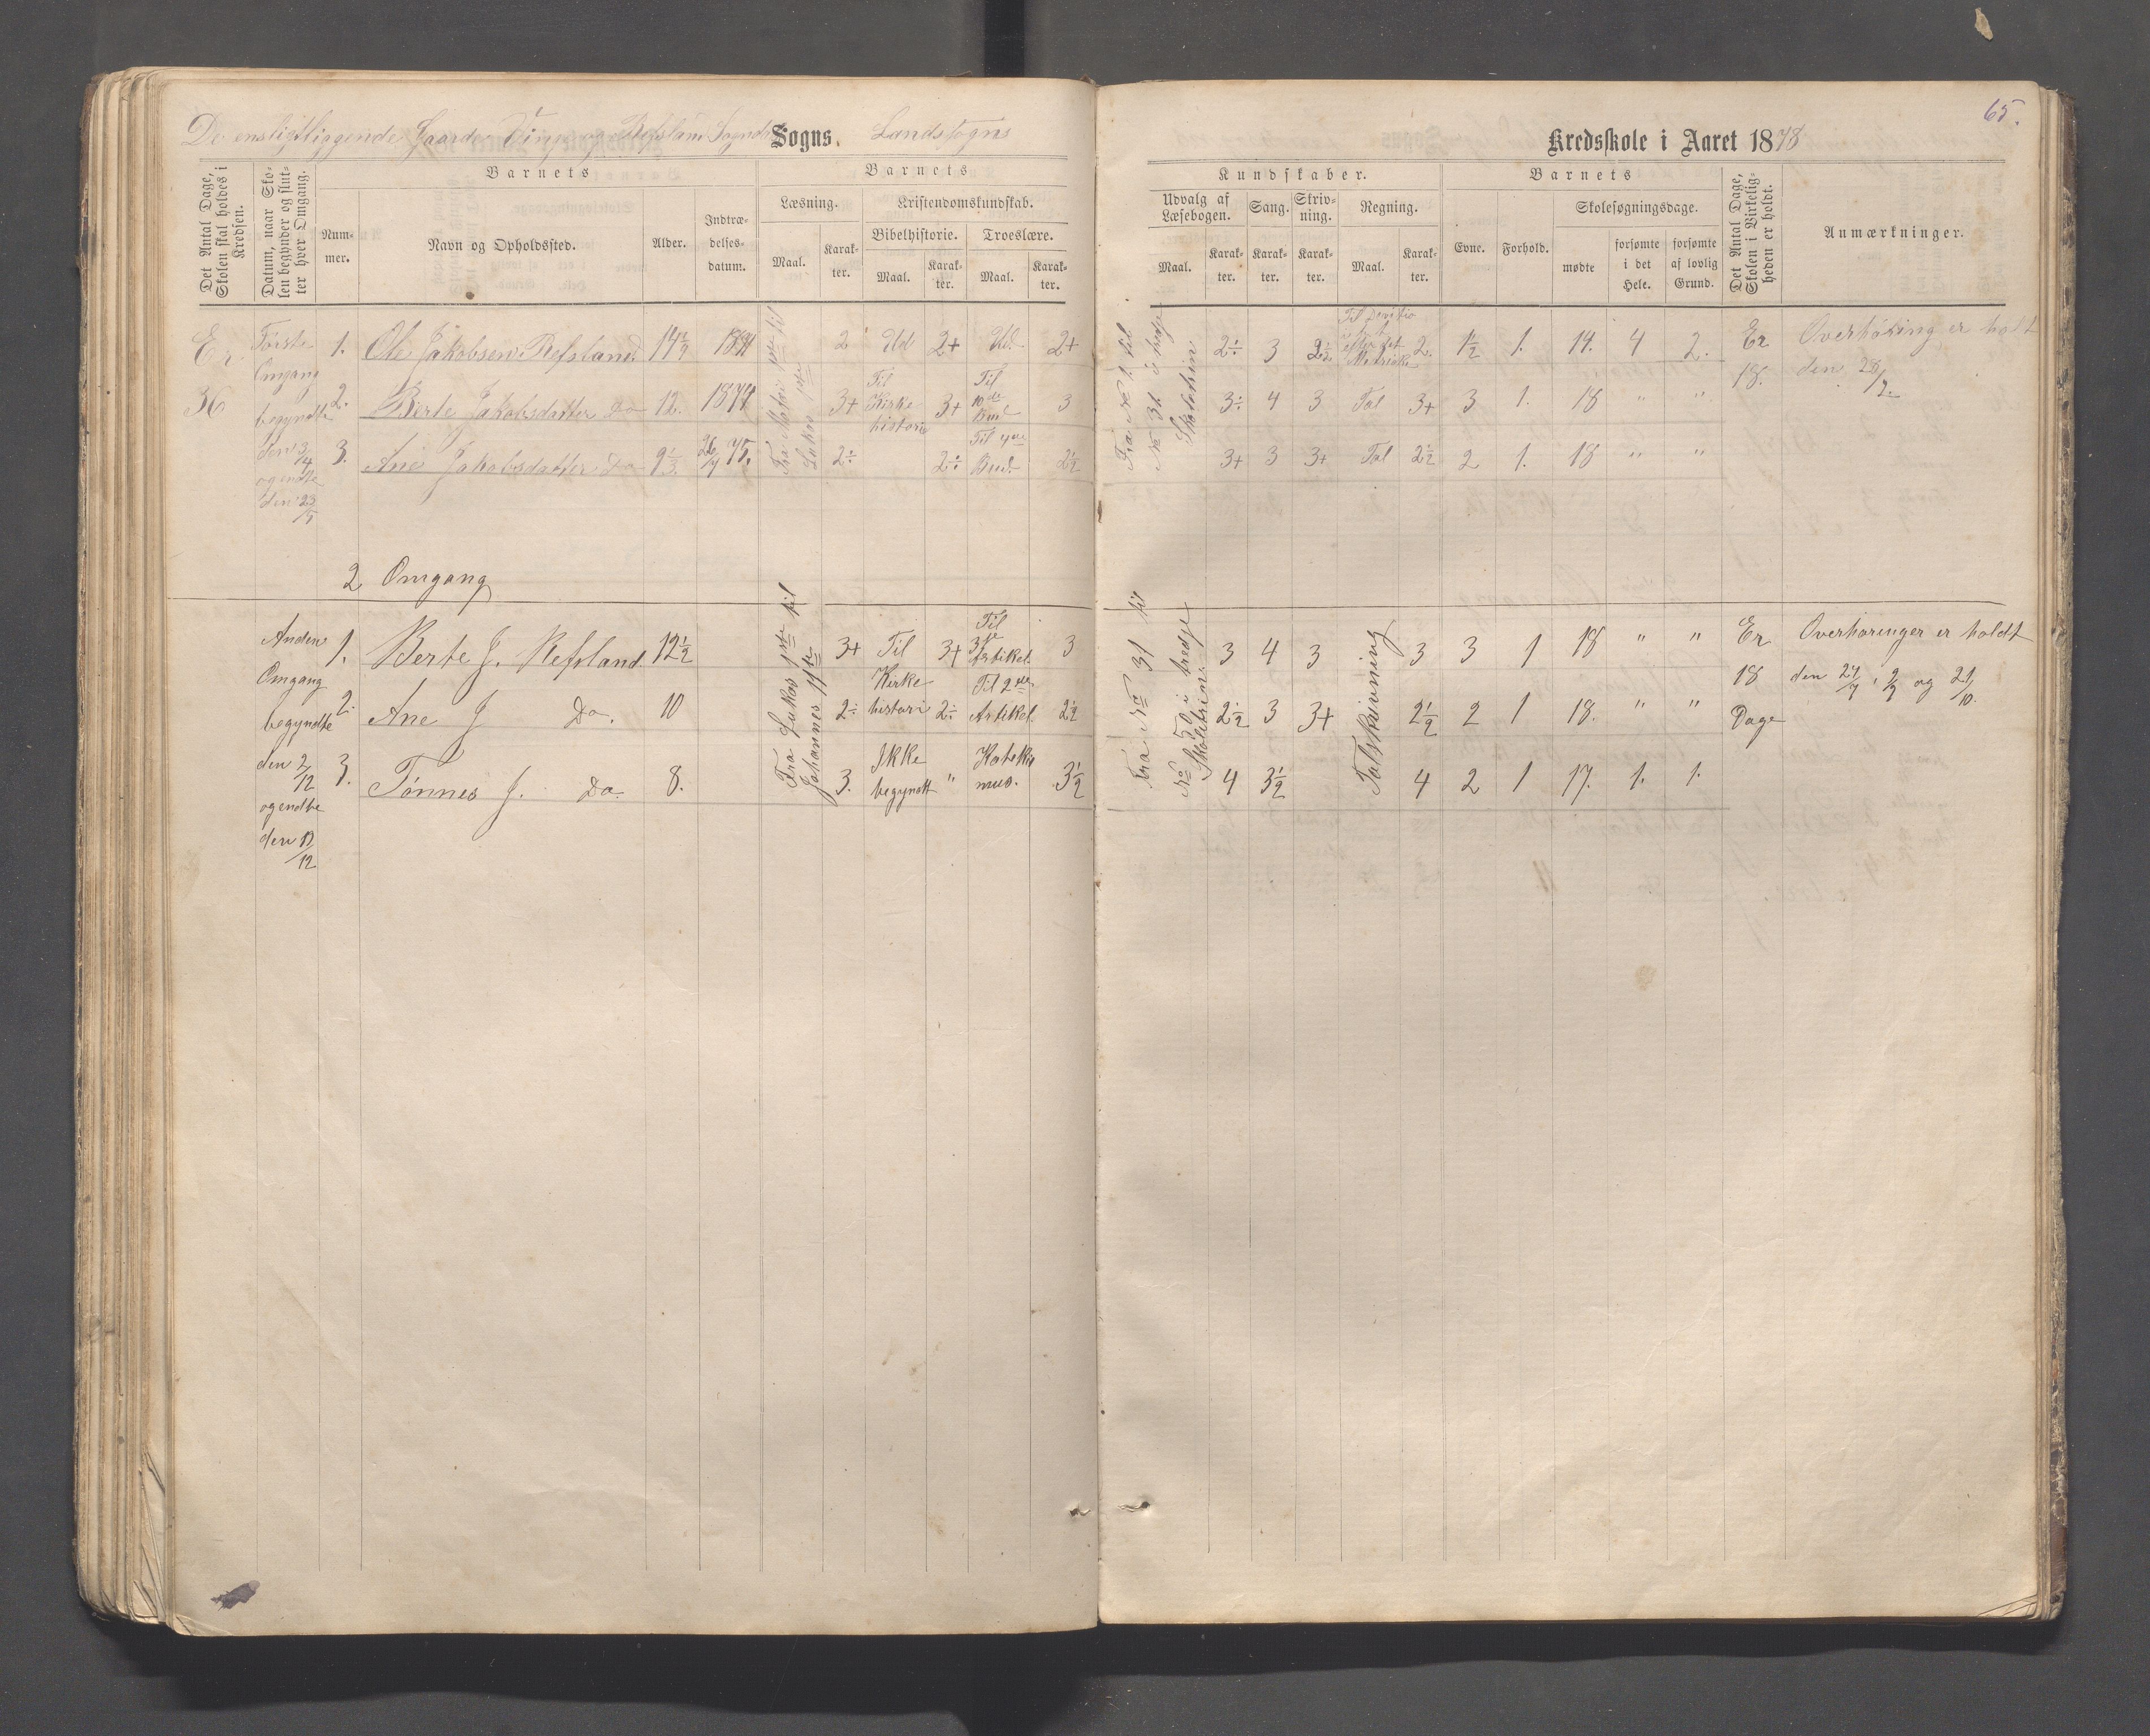 65.
De ensligtliggende Gaarde og Refsland Sogndals Sogns. Landsogns
Kredsskole i Aaret 1878
Det Antal Dage, Skolen skal holdes i Kredsen.
Datum, naar Skolen begynder og slutter hver Omgang.
Barnets
Nummer.
Navn og Opholdssted.
Alder.
Indtrædelsesdatum.
Barnets
Læsning.
Maal.
Karakter.
Kristendomskundskab.
Bibelhistorie.
Maal.
Karakter.
Troeslære.
Maal.
Karakter.
Kundskaber.
Udvalg af Læsebogen.
Maal.
Karakter.
Sang.
Karakter.
Skrivning.
Karakter.
Regning.
Maal.
Karakter.
Barnets
Evne.
Forhold.
Skolesøgningsdage.
mødte
forsømte i det Hele.
forsømte af lovlig Grund.
Det Antal Dage, Skolen i Virkeligheden er holdt.
Anmærkninger.
Er
36
Første
Omgang
begyndte
og endte
1. Ole Jakobsen Refsland 14 1/2 1874 2 Ud 2+ Ud. 2+ 2÷ 3 2. 1 1/2 1. 14. 4 2. Er Overhøring er holdt
2. Berte Jakobsdatter Do 12. 1874 3+ Til Kirkehistorie 3+ Til 10de Bud 3 3÷ 4 3 Tal 3+ 3 1. 18 " " 18. den 28/2
3. Ane Jakobsdatter Do 75. 2÷ 2÷ Til 4de Bud. 2 1/2 3+ 3 3+ Tal 2 1/2 2 1. 18 " "
Fra 1ste til
Lukas
Fra № 1 til
№ 31 i tredje
Skoletrin
2 Omgang
Anden
Omgang
begyndte
den 2/12
og endte
den
1. Berte J. Refsland. 12 1/2 3+ Til 3+ Til Artikel. 3 3 4 3 3 3 1 18 " " Er Overhøringer er holdt
2. Ane J Do. 10 2÷ Kirkehistorie 2÷ Til 2den Artikel 2 1/2 2 1/2 3 3+ 2 1/2 2 1 18. " " 18 Dage
3. Tønnes J. Do. 8. 3. Ikke begyndt " Katekismus. 3 1/2 4 3 1/2 4 2 1 17. 1. 1.
Fra Lukas 1ste til
Johannes
Fra № 31 til
i tredje
Skoletrin
Talskrivning